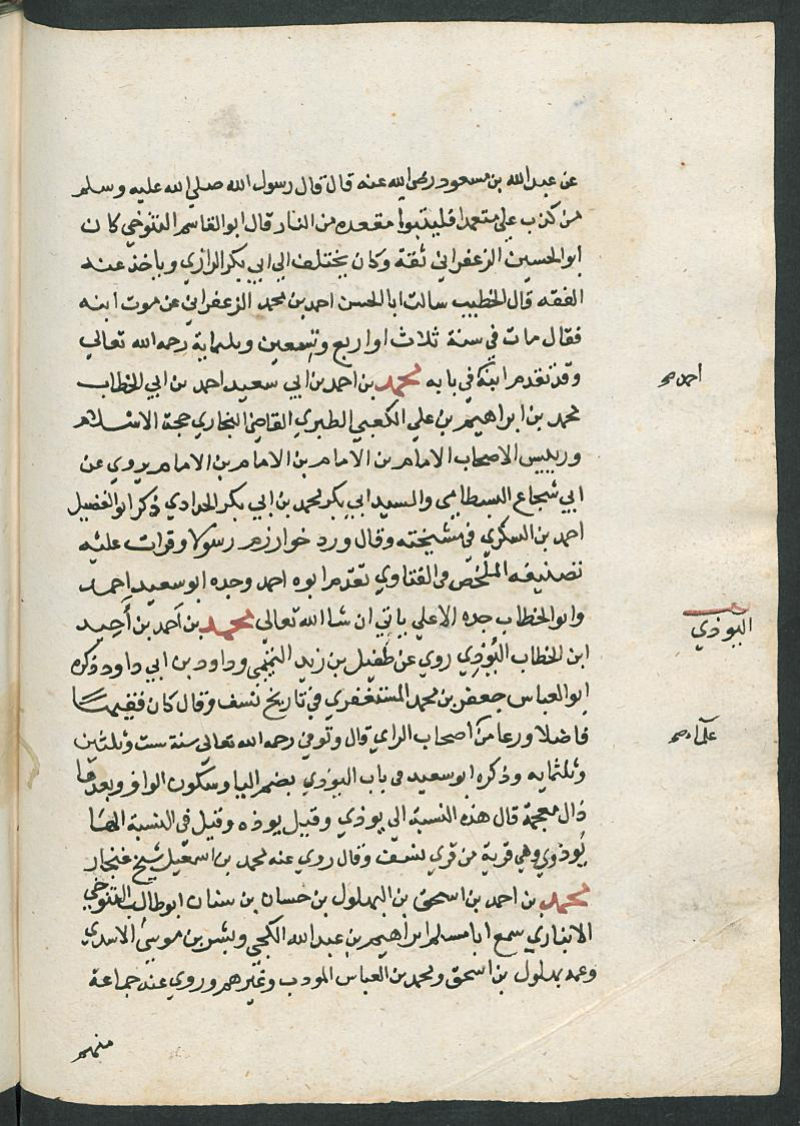 عن عبد الله بن مسعود رضي الله عنه قال قال رسول الله صلي الله عليه وسلم
من كذب علي متعمدا فليتبوا مقعده من النار قال ابو القاسم التنوخي كان
ابو الحسين الزعفراني ثقة وكان يختلف الي ابي بكر الرازي وياخذ عنه
الفقه قال الخطيب سالت ابا الحسن احمد بن محمد الزعفراني عن موت ابنه
فقال مات في سنة ثلاث او اربع وتسعين وثلثماية رحمه الله تعالي
وقد تقدم ابنه في بابه محمد بن احمد بن ابي سعيد احمد بن ابي الخطاب
محمد بن ابراهيم بن علي الكعبي الطبري القاضي البخاري حجة الاسلام
ورييس الاصحاب الامام بن الامام بن الامام بن الامام يروي عن
ابي شجاع البسطامي والسيد ابي بكر محمد بن ابي بكر الحدادي ذكر ابو الفضل
احمد بن السكري في مشيخته وقال ورد خوارزم رسولا وقرات عليه
تصنيفه الملخص في الفتاوي تقدم ابوه احمد وجده ابو سعيد احمد
وابو الخطاب جده الاعلي ياتي ان شا الله تعالي محمد بن احمد بن أحيد
ابن الخطاب اليُوذي روي عن طفيل بن زيد التميمي وداود بن ابي داود ذكره
ابو العباس جعفر بن محمد المستغفري في تاريخ نسف وقال كان فقيها
فاضلا ورعا من اصحاب الراي قال وتوفي رحمه الله تعالي سنة ست وثلثين
وثلثمايه وذكره ابو سعيد في باب اليوذي بضم اليا وسكون الواو وبعدها
ذال معجمة قال هذه النسبة الي يوذي وقيل يوذه وقيل في النسبة اليها
يُوذوي وهي قرية من قري نسف وقال روي عنه محمد بن اسمعيل شيخ غنجار
محمد بن احمد بن اسحق بن البهلول بن حسان بن سنان ابو طالب التنوخي
الانباري سمع ابا مسلم ابراهيم بن عبد الله الكجي وبشر بن موسي الاسدي
وعمه بهلول بن اسحق ومحمد بن العباس المودب وغيرهم وروي عنه جماعة
منهم
اليوذي